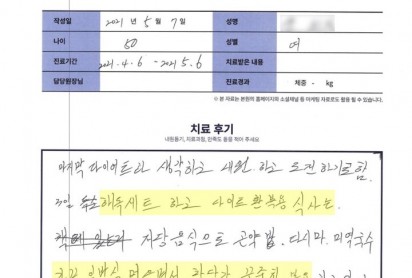 작성일 2021년 5월 7일 성명
나이 50 성별 여
진료기간 2021.4.6 - 2021.5.6 치료받은 내용
담당원장님 진료경과 체중 - kg
※ 본 자료는 본원의 홈페이지와 소셜채널 등 마케팅 자료로도 활용 될 수 있습니다.
치료 후기
내원동기, 치료과정, 만족도 등을 적어 주세요
마지막 다이어트라 생각하고 내원 하고 도전 하기로함.
3일 해독세트 하고 다이트환복용 식사는
저당음식으로 곤약밥. 다시마. 미역국수